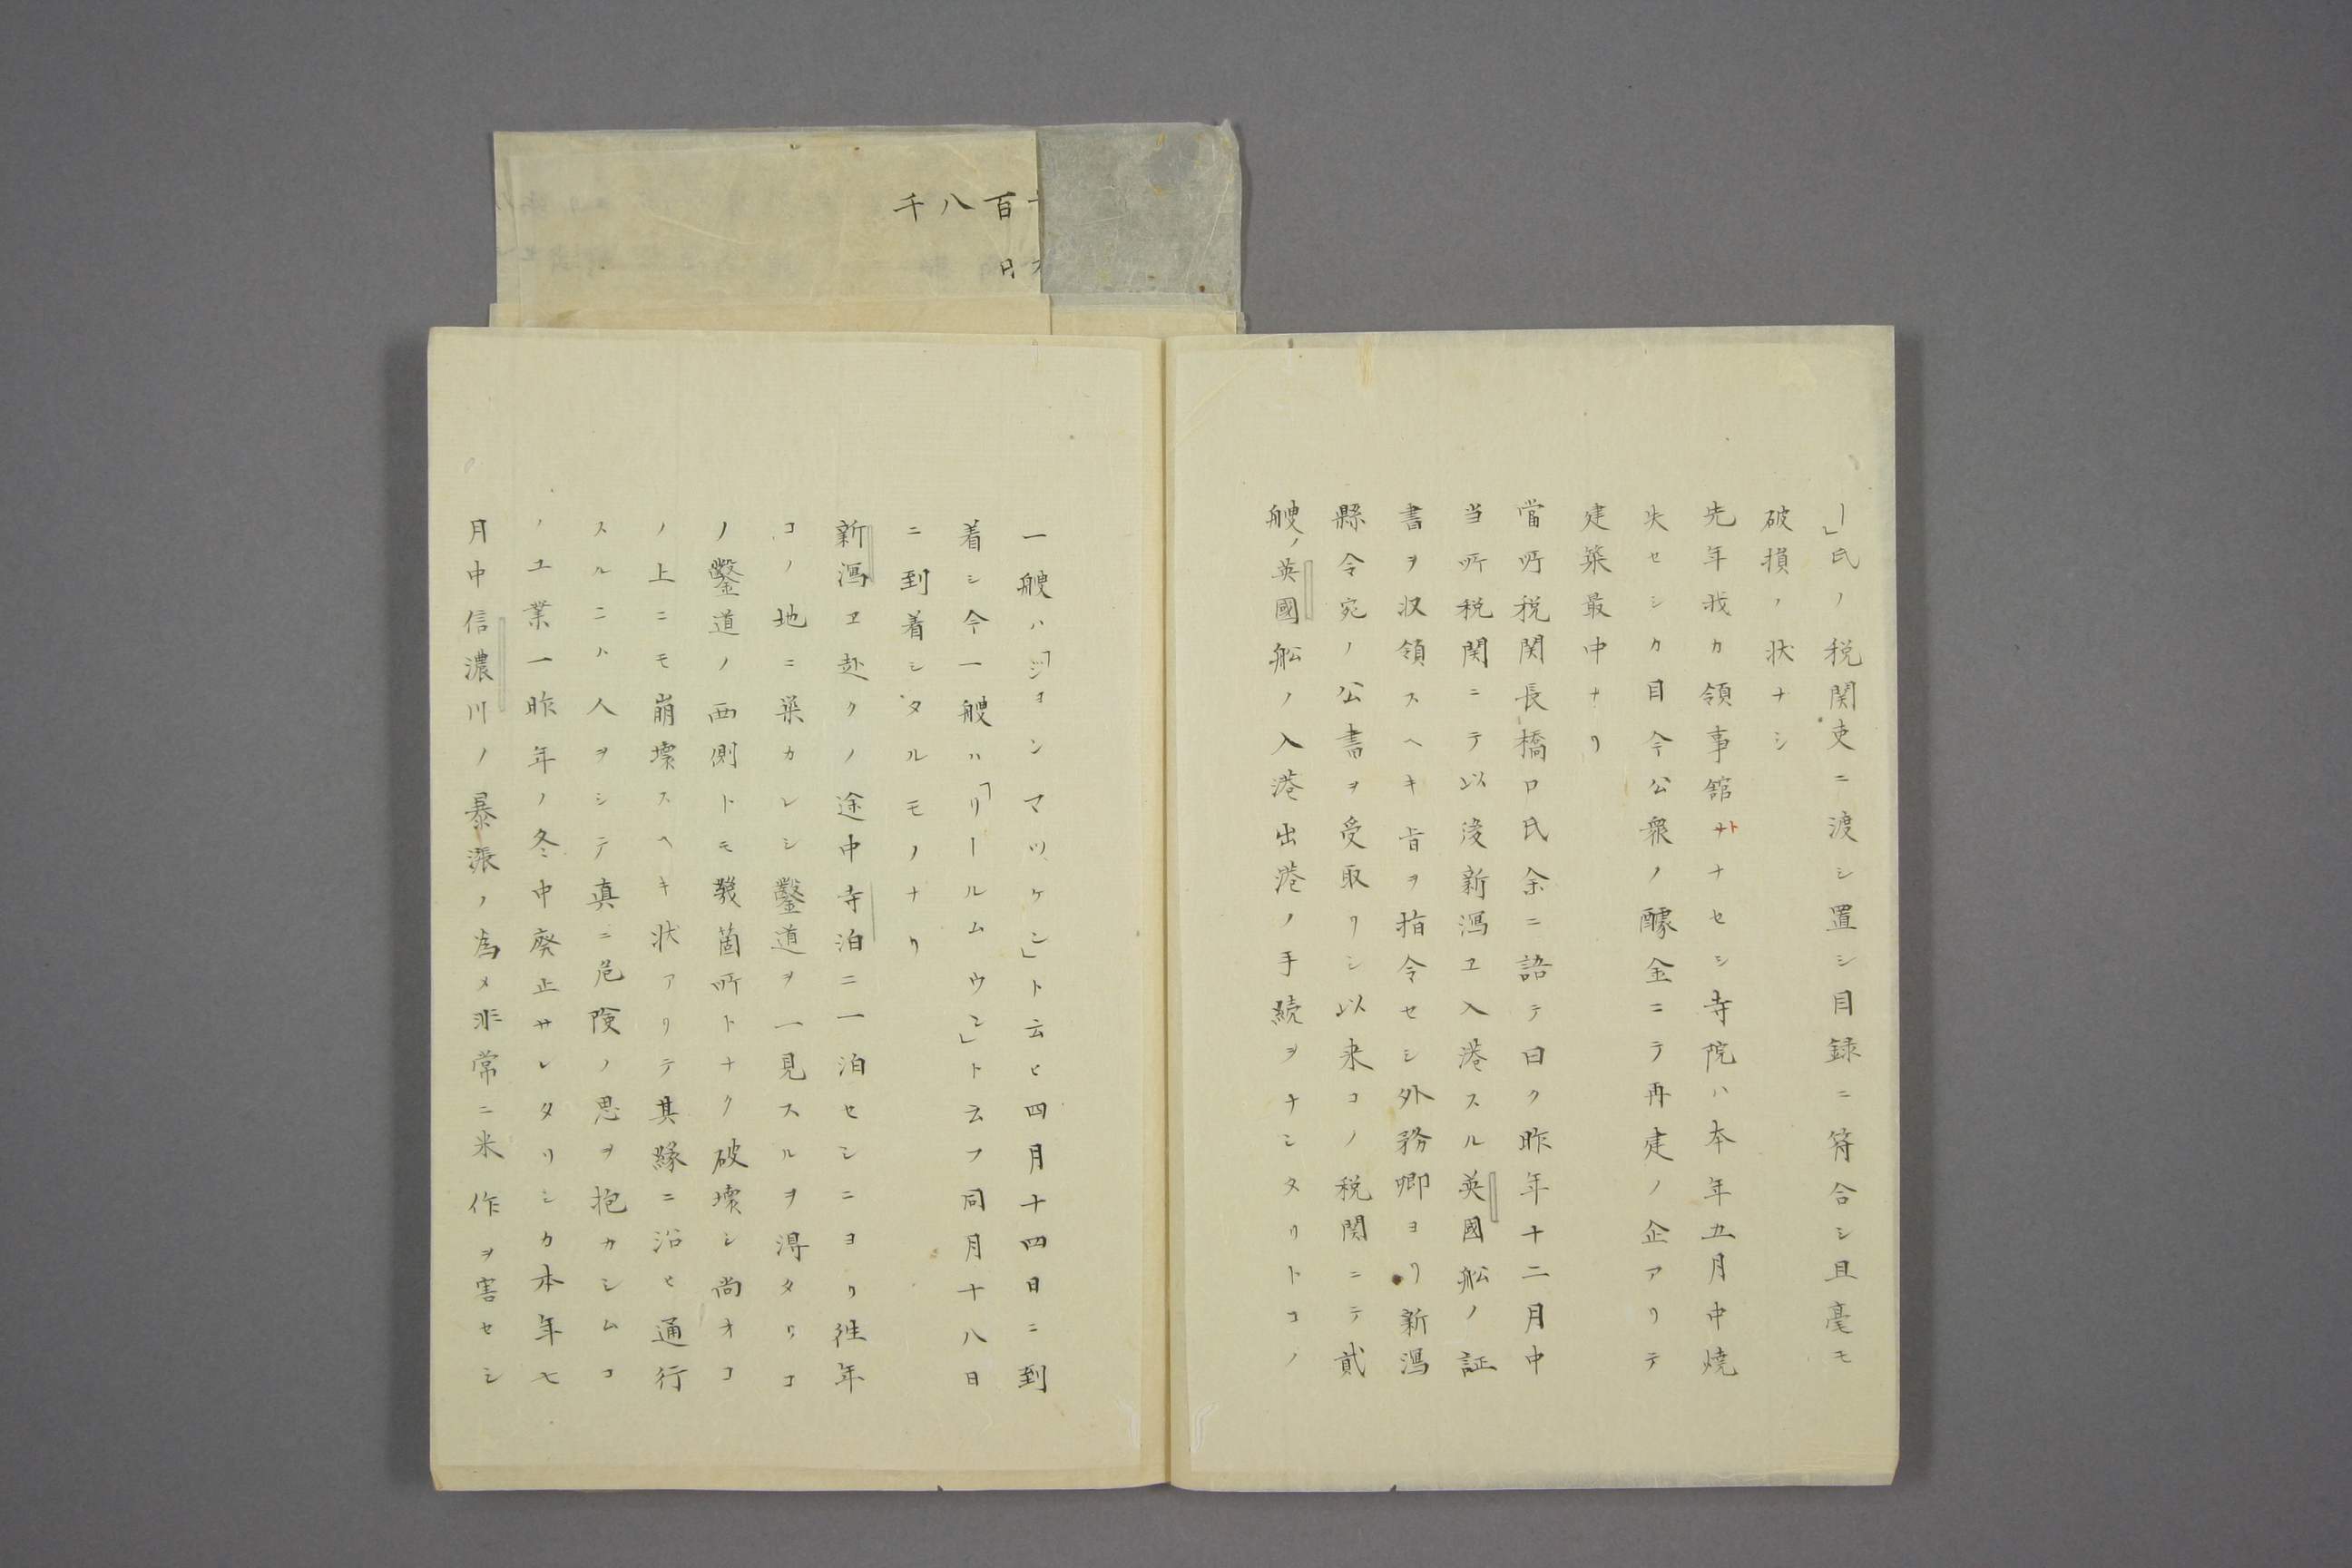 ー」氏ノ税関吏ニ渡シ置シ目録ニ符合シ且毫モ
破損ノ状ナシ
先年我カ領事舘トナセシ寺院ハ本年五月中焼
失セシカ目今公衆ノ醵金ニテ再建ノ企アリテ
建築最中ナリ
當所税関長橋口氏余ニ語テ曰ク昨年十二月中
当所税関ニテ以後新潟ヱ入港スル英國舩ノ証
書ヲ収領スヘキ旨ヲ指令セシ外務卿ヨリ新潟
縣令宛ノ公書ヲ受取リシ以来コノ税関ニテ貳
艘ノ英國舩ノ入港出港ノ手続ヲナシタリトコノ
一艘ハ「ジヨンマツケン」ト云ヒ四月十四日ニ到
着シ今一艘ハ「リールムウン」ト云フ同月十八日
ニ到着シタルモノナリ
新潟ヱ赴クノ途中寺泊ニ一泊セシニヨリ徃年
コノ地ニ築カレシ鑿道ヲ一見スルヲ得タリコ
ノ鑿道ノ西側トモ幾箇所トナク破壊シ尚オコ
ノ上ニモ崩壊スヘキ状アリテ其縁ニ沿ヒ通行
スルニハ人ヲシテ真ニ危険ノ思ヲ抱カシムコ
ノ工業一昨年ノ冬中廃止サレタリシカ本年七
月中信濃川ノ暴漲ノ為メ非常ニ米作ヲ害セシ
千八百
日